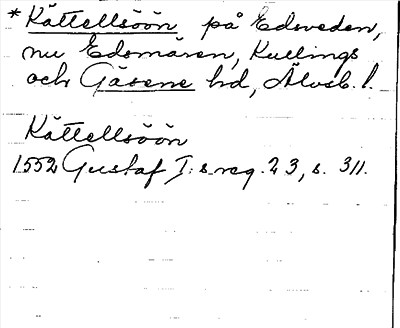 *Kättellsöön på Edsveden,
nu Edsmären, Kullings
och Gäsene hd, Älvsb. l.
Kättellsöön
1552 Gustaf I:s reg. 23, s. 311.